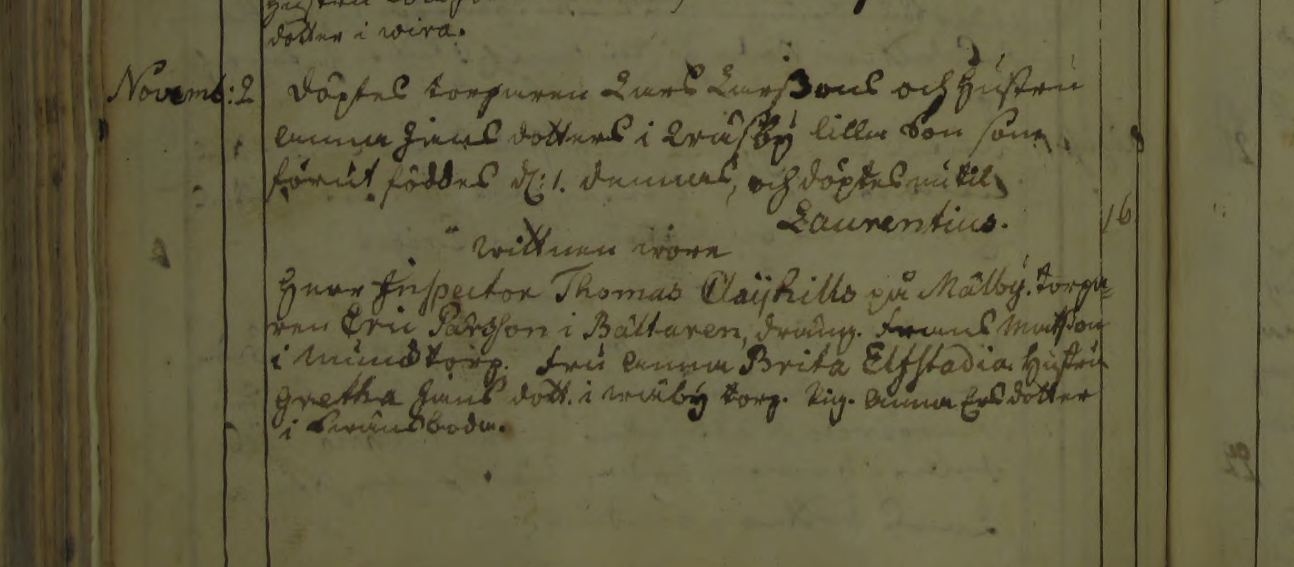 dotter i wira.
Novemb: 2 döptes torparen Lars Larßons och hustru
Anna Jans dotters i Bråsby lilla Son som
förut föddes d: 1. dennas, och döptes nu til
Laurentius. 16
wittnen wore
Herr Inspector Thomas Claijhills på Mälby. torpa=
ren Eric Pärsson i Bältaren, dräng. Frans Mattson
i torp. Fru Anna Brita Elfstadia. Hustru
Gretha Jans dott. i torp. Pig. Anna Ersdotter
i